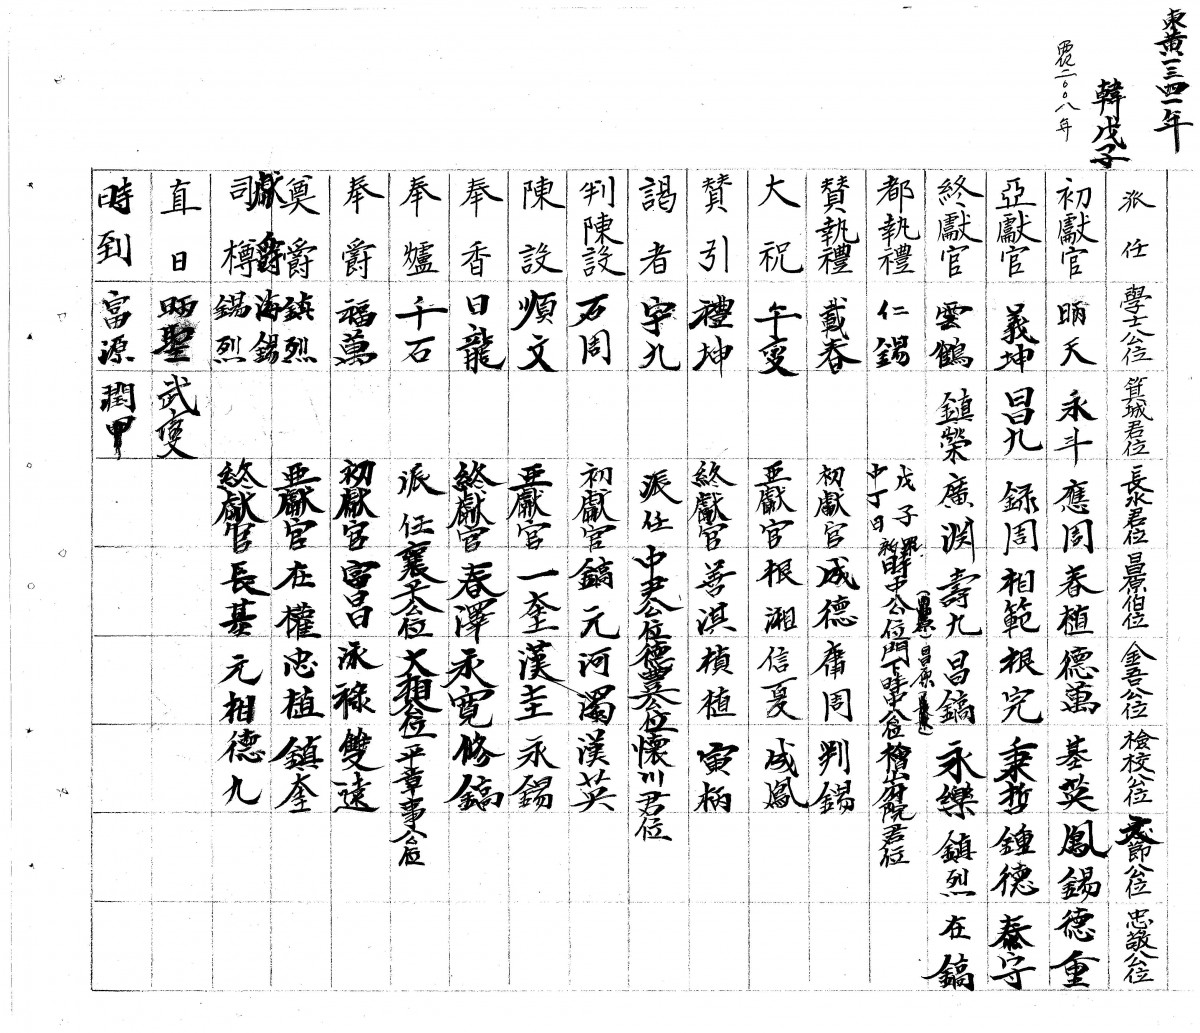 東黄一三四一年
韓戊子
西紀二〇〇八年
派任 學士公位 箕城君位 長水君位 昌原伯位 金吾公位 檢校公位 節公位 忠敬公位
初獻官 昞天 永斗 應周 春植 德萬 基英 鳳錫 德重
亞獻官 義坤 昌九 録周 相範 根完 秉哲 鍾德 泰守
終獻官 雲鶴 鎮榮 廣渊 壽九 昌鎬 永樂 鎮烈 在鎬
都執禮 仁錫 戊子 中丁日 侍中公位 門下侍中公位 檜山府院君位
贊執禮 載春 初獻官 成德 周 判錫
大祝 午燮 亞獻官 根湘 信夏 成鳳
贊引 禮坤 終獻官 善淇 楨植 寅柄
謁者 宇九 派任 中尹公位 德巽公位 懷川君位
判陳設 石周 初獻官 鎬元 河濁 漢英
陳設 順文 亞獻官 一奎 漢圭 永錫
奉香 日龍 終獻官 春澤 永寬 修鎬
奉爐 千石 派任 襄平公位 大相公位 平章事公位
奉爵 福萬 初獻官 富昌 泳祿 雙遠
奠爵 鎮烈 亞獻官 在權 忠植 鎮奎
獻爵 海錫
司樽 錫烈 終獻官 長基 元相 德九
直日 昞聖 武燮
時到 富源 潤甲